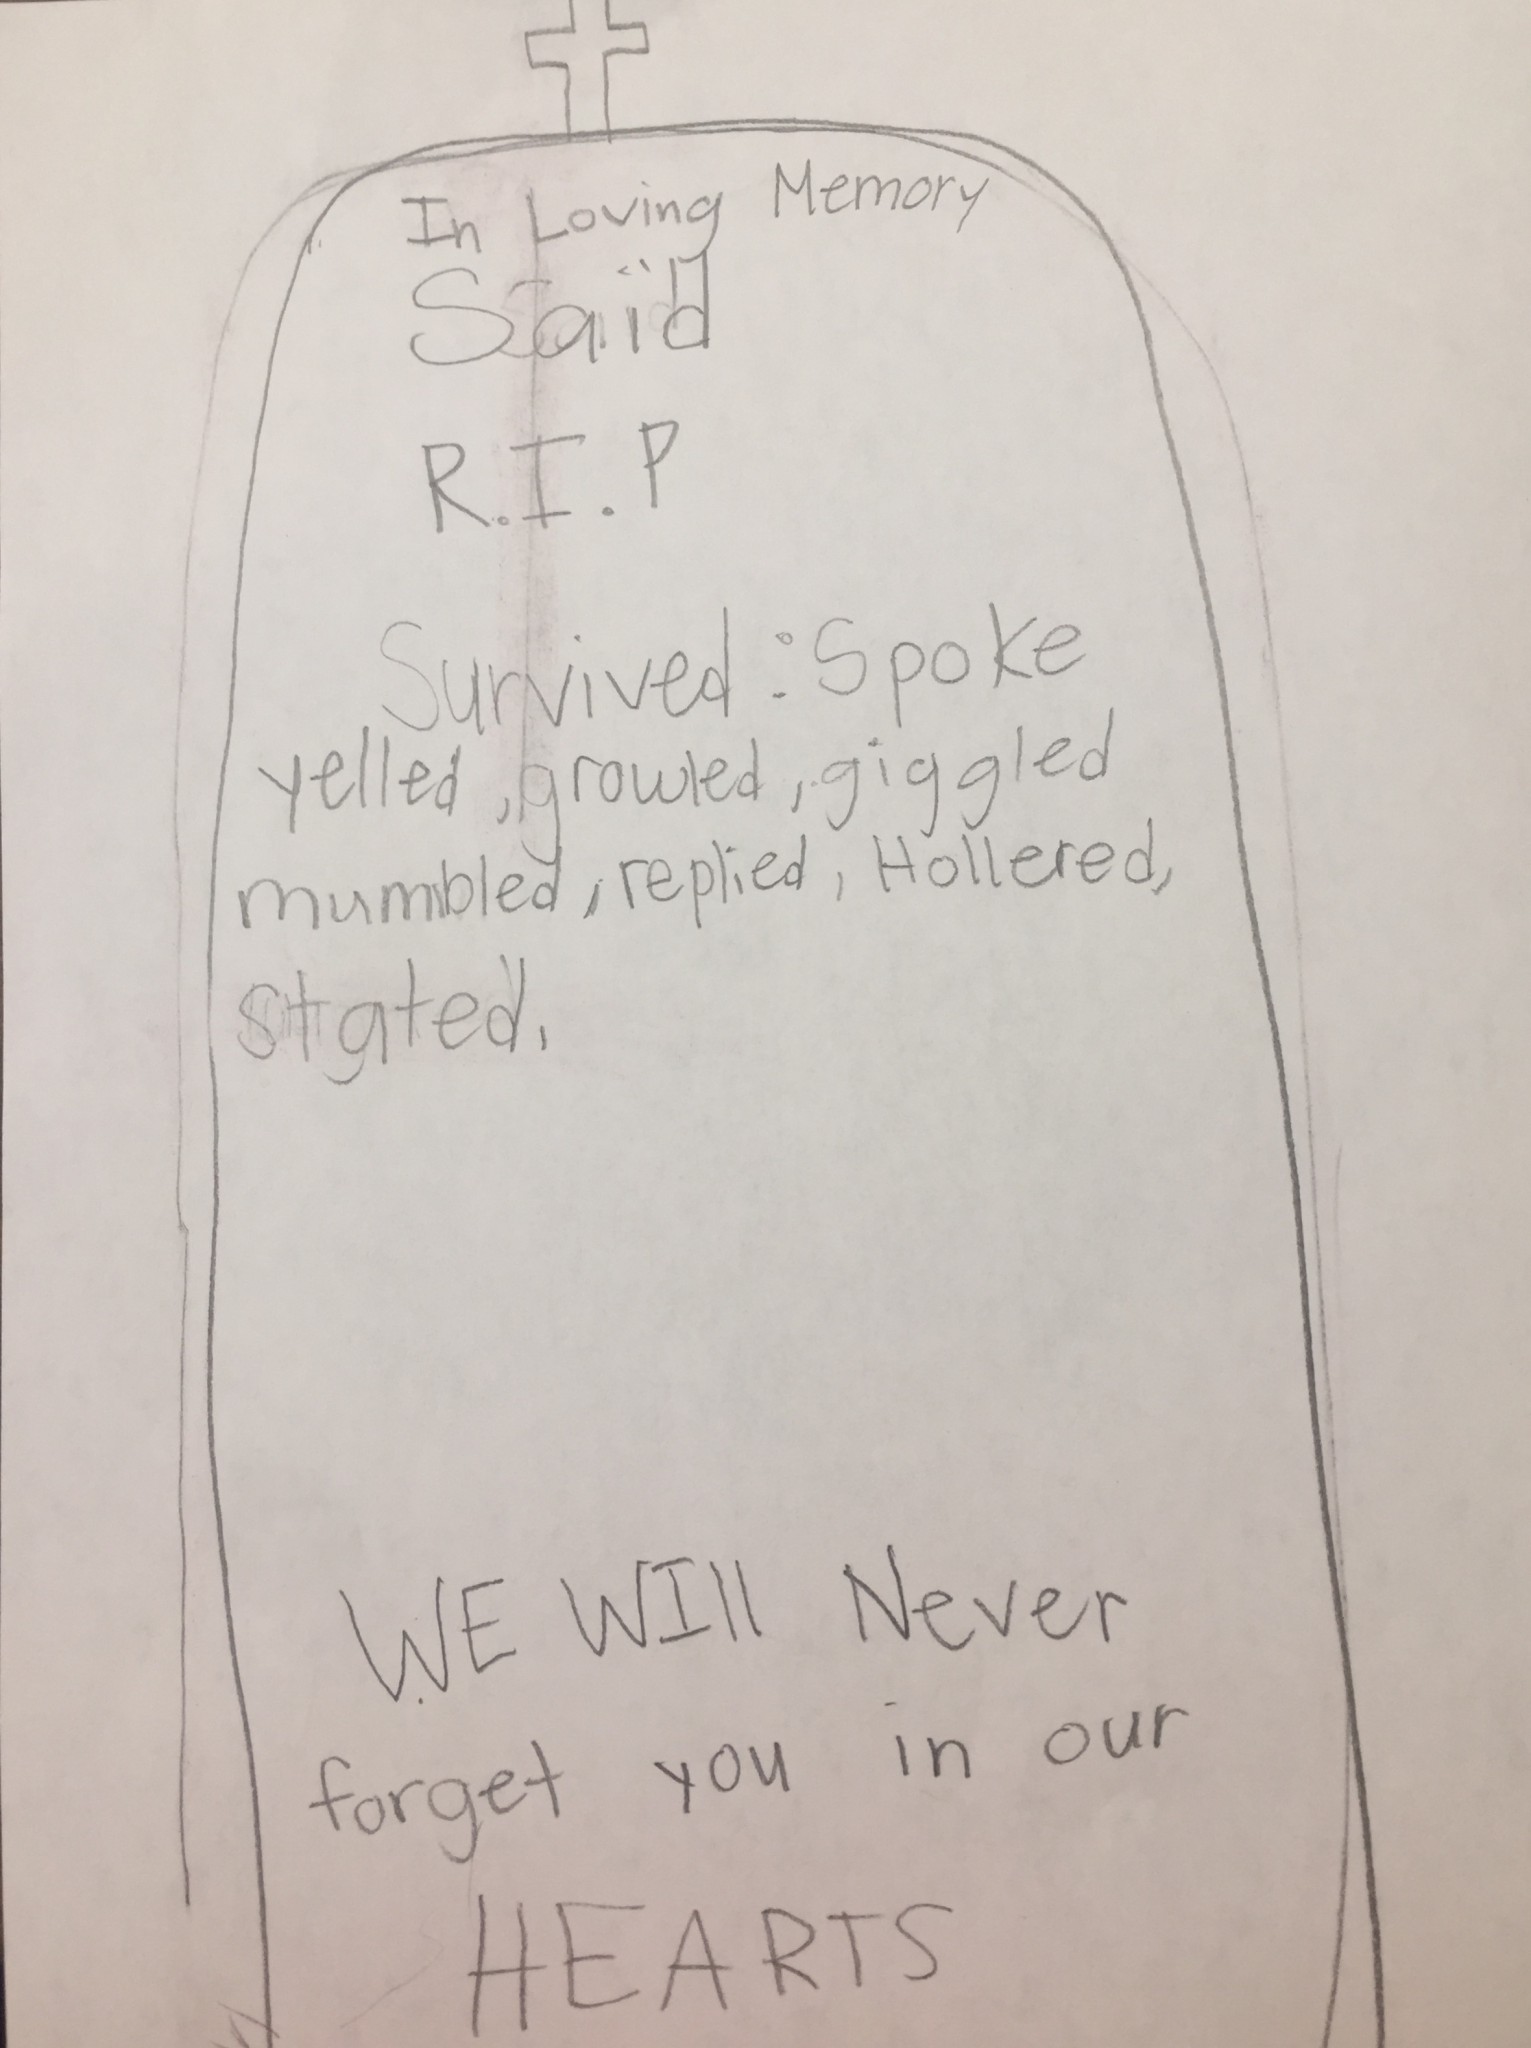 In Loving Memory
Said
R.I.P
Survived: Spoke
yelled, growled, giggled
mumbled, replied, Hollered,
stated.
WE WIll Never
forget you in our
HEARTS